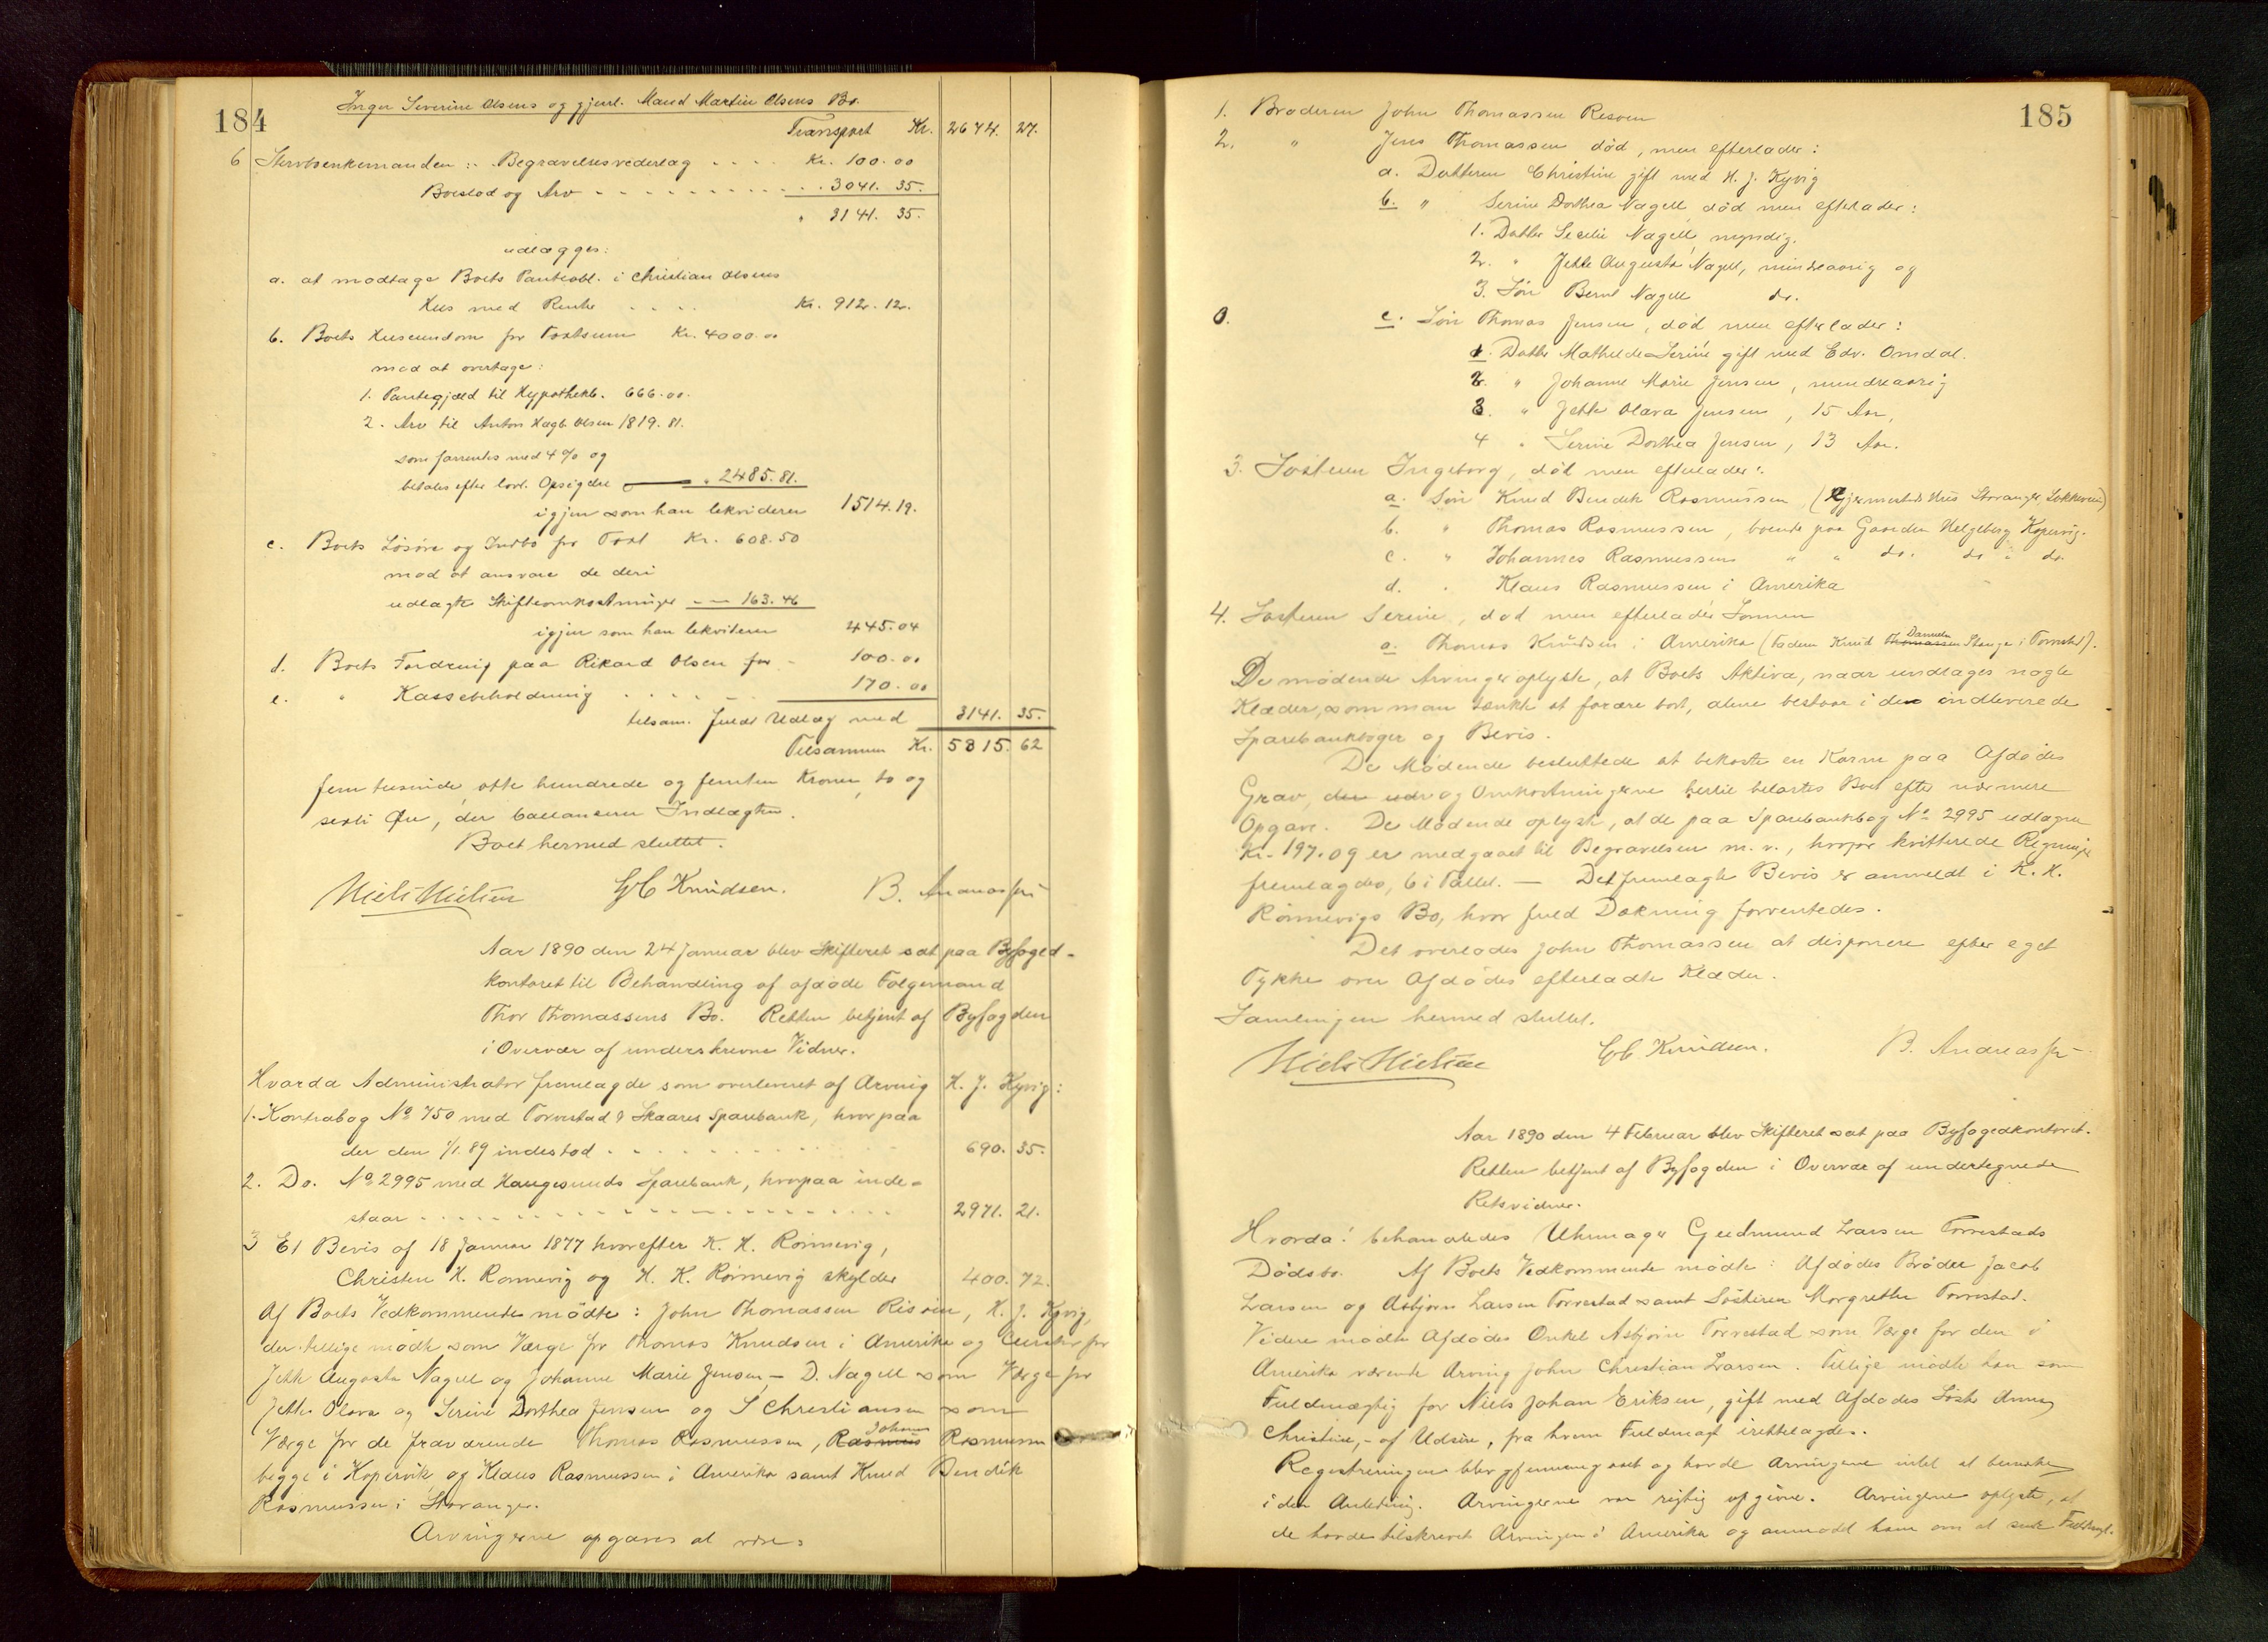 184
Inger Severine Olsens og gjenl. Mand Martin Olsens Bo.
Transport Kr. 2674. 27.
6 Stervbøenkemanden: Begravelsesvederlag . . . . Kr. 100.00
Boeslod og Arv . . . . . . . . 3041. 35.
" 3141. 35.
udlægges:
a. at modtage Boets Panteobl. i Christian Olsens
Hus med Rente . . . . Kr. 912.12.
b. Boets Huseiendom for Taxtsum Kr. 4000.00
mod at overtage:
1. Pantegjæld til Hypothekb. 666.00.
2. Arv til Anton Hagb. Olsen 1819.81.
som forrentes med 4% og
betales efter lovl. Opsigelse " 2485.81.
igjen som han lekviderer 1514.19.
c. Boets Løsøre og Indbo for Taxt Kr. 608.50
mod at ansvare de deri
udlagte Skifteomkostninger — 163.46
igjen som han lekviterer 445.04
d. Boets Fordring paa Rikard Olsen for - 100.00
e. " Kassebeholdning . . . . . 170.00
tilsam. fuldt Udlæg med 3141. 35.
Tilsammen Kr. 5815. 62
fem tusinde, otte hundrede og femten Kroner, to og
sexti Øre, der ballanserer Indtægten.
Boet hermed sluttet.
Niels Nielsen G C Knudsen. B. Andreassen
Aar 1890 den 24 Januar blev Skifteret sat paa Byfoged-
kontoret til Behandling af afdøde Følgemand
Thor Thomassens Bo. Retten betjent af Byfogden
i Overvær af underskrevne Vidner.
Hvorda Administrator fremlagde som overleveret af Arving H. J. Kyvig:
1. Kontrabog No 750 med Torvestad & Skaares Sparebank, hvorpaa
der den 1/1. 89 indestod . . . . . . . . 690. 35.
2. Do. No 2995 med Haugesunds Sparebank, hvorpaa inde-
staar . . . . . . . . . . . . 2971. 21.
3 Et Bevis af 18 Januar 1877 hvorefter K. K. Rönnevig,
Christen K. Ronnevig og K. K. Rönnevig skylder 400. 72.
Af Boets Vedkommende mödte: John Thomassen Risöen, H. J. Kyvig,
der tillige mödte som Værge for Thomas Knudsen i Amerika og Curator for
Jette Augusta Nagell og Johanne Marie Jensen — D. Nagell som Værge for
Jette Olava og Serine Dorthea Jensen og S Christiansen som
Værge for de fraværende Thomas Rasmussen, Rasmus Johan Rasmussen
begge i Kopervik, og Klaus Rasmussen i Amerika samt Knud Bendik
Rasmussen i Stavanger.
Arvingerne opgaves at være:
185
1. Broderen John Thomassen Risøen
2. " Jens Thomassen død, men efterlader:
a. Datteren Christine gift med H. J. Kyvig
b. " Serine Dorthea Nagell, død men efterlader:
1. Datter Secelie Nagell, myndig.
2. " Jette Augusta Nagell, mindreaarig og
3. Søn Bernt Nagell do.
c. Søn Thomas Jensen, død men efterlader:
1. Datter Mathilde Serine gift med Edv. Omdal.
2. " Johanne Marie Jensen, mindreaarig
3. " Jette Olava Jensen, 15 Aar,
4 " Serine Dorthea Jensen, 13 Aar.
3. Søsteren Ingeborg, död men efterlader:
a. Søn Knud Bendik Rasmussen, ( Hus Stavanger )
b. " Thomas Rasmussen, boende paa Gaarden Helgeberg Kopervig.
c. " Johannes Rasmussen " " do. do i do.
d. " Klaus Rasmussen i Amerika
4. Søsteren Serine, død men efterlader Sønnen
a. Thomas Knudsen i Amerika (Faderen Knud Thomassen Danielsen Stange i Torvestad).
De mødende Arvinger oplyste, at Boets Aktiva, naar undtages nogle
Klæder, som man tænkte at forære bort, alene bestaar i de indleverede
Sparebankbøger og Bevis.
De Mødende besluttede at bekoste en Karm paa Afdødes
Grav, den udr og Omkostningerne hertil belastes Boet efter nærmere
Opgave. De Mødende oplyste, at de paa Sparebankbog No 2995 udtagne
Kr. 197.09 er medgaaet til Begravelsen m. v., hvorfor kvitterede Regninger
fremlagdes, 6 i Tallet. — Det fremlagte Bevis er anmeldt i K. K.
Rönnevigs Bo, hvor fuld Dækning forventedes.
Det overlodes John Thomassen at disponere efter eget
Tykke over Afdødes efterladte Klæder.
Samlingen hermed sluttet.
Niels Nielsen G C Knudsen. B. Andreassen
Aar 1890 den 4 Februar blev Skifteret sat paa Byfogedkontoret.
Retten betjent af Byfogden i Overvær af undertegnede
Retsvidner.
Hvorda: behandledes Uhrmager Gudmund Larsen Torvestads
Dødsbo. Af Boets Vedkommende mødte: Afdødes Brødre Jacob
Larsen og Asbjørn Larsen Torvestad samt Søsteren Margrethe Torvestad.
Videre mødte Afdødes Onkel Asbjørn Torvestad som Værge for den i
Amerika værende Arving John Christian Larsen. Tillige mødte han som
Fuldmægtig for Niels Johan Eriksen, gift med Afdødes Søster Anne
Christine, - af Udsire, fra hvem Fuldmagt irettelagdes.
Registreringen blev gjennemgaaet og havde Arvingerne intet at bemærke
i den Anledning. Arvingerne var rigtig opgivne. Arvingerne oplyste, at
de havde tilskrevet Arvingen i Amerika og anmodet ham om at sende Fuldmagt.